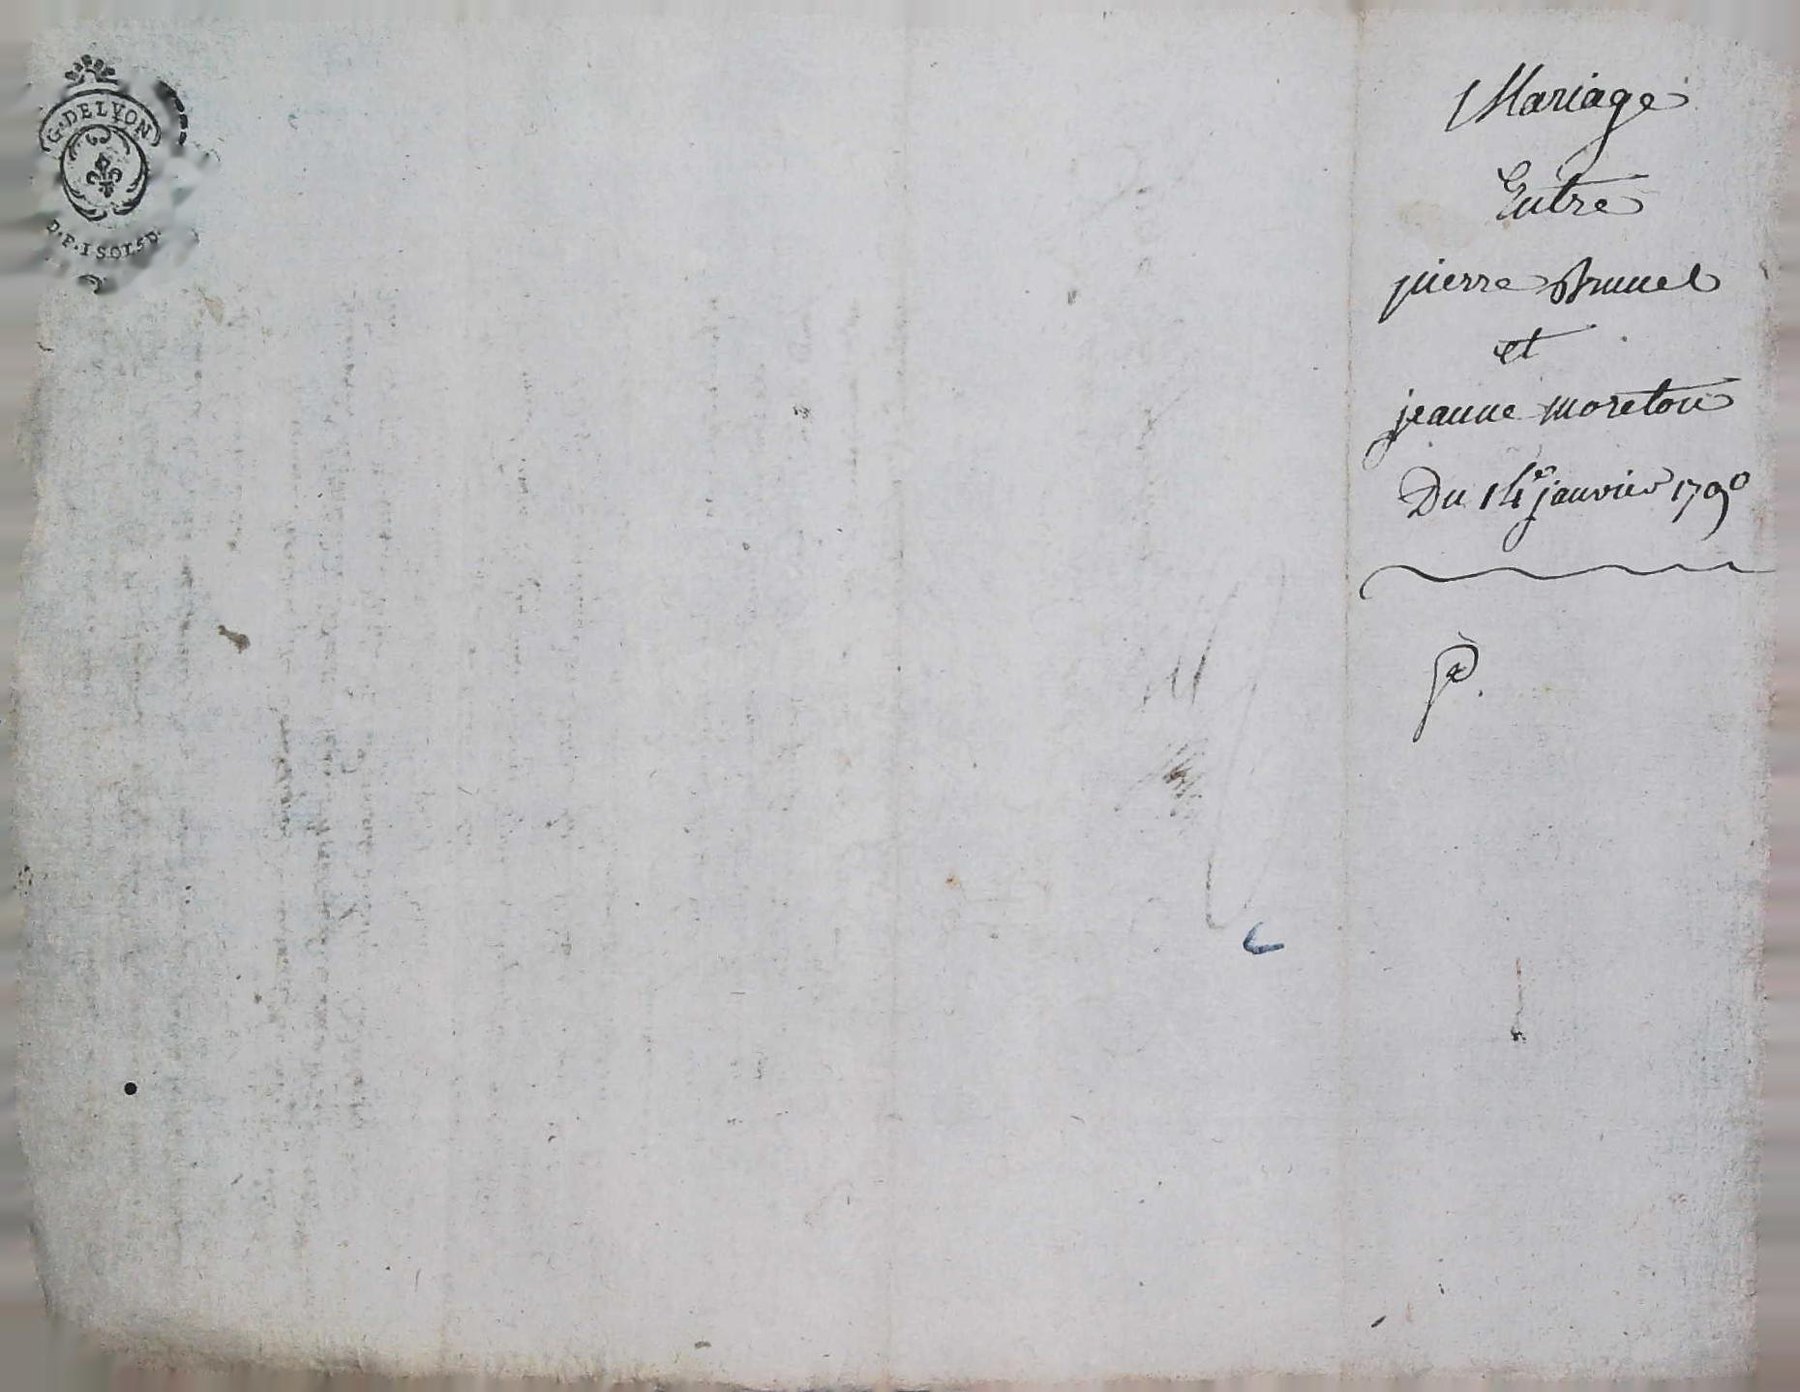 G. DE LYON
D. P. 1 SOL 5 D.
Mariage
Entre
pierre Brunel
et
jeanne moreton
Du 14e janvier 1790